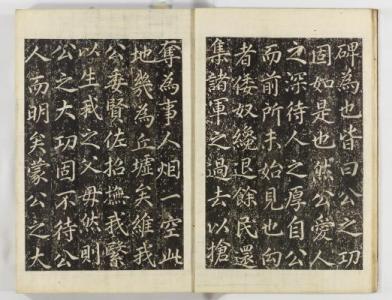 碑為也皆曰公之功
固如是也然公愛人
之深待人之厚自公
而前所未始見也向
者倭奴纔退餘民還
集諸軍之過去以搶
奪為事人烟一空此
地幾為丘墟矣維我
公妻賢佐招撫我繄
以生我之父母然則
公之大功固不待公
人而明矣蒙公之大